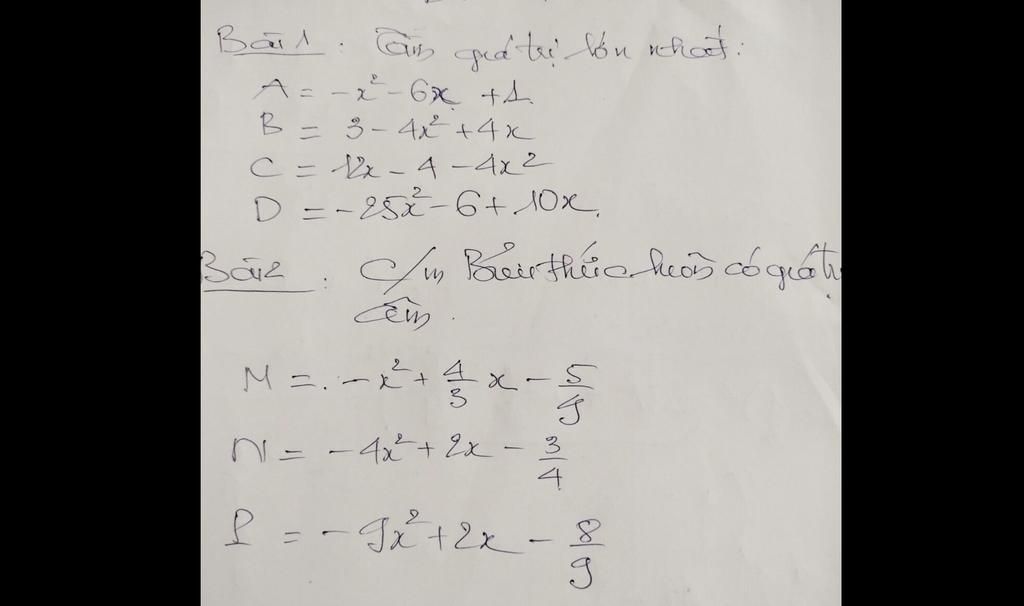 Bài 1 : Tìm giá trị lớn nhất :
A = -x² - 6x + 1.
B = 3 - 4x² + 4x
C = 12x - 4 - 4x²
D = -25x² - 6 + 10x.
Bài 2 : C/m Biểu thức luôn có giá trị
âm .
M = . -x² + 4/3 x - 5/9
N = -4x² + 2x - 3/4
P = -9x² + 2x - 8/9